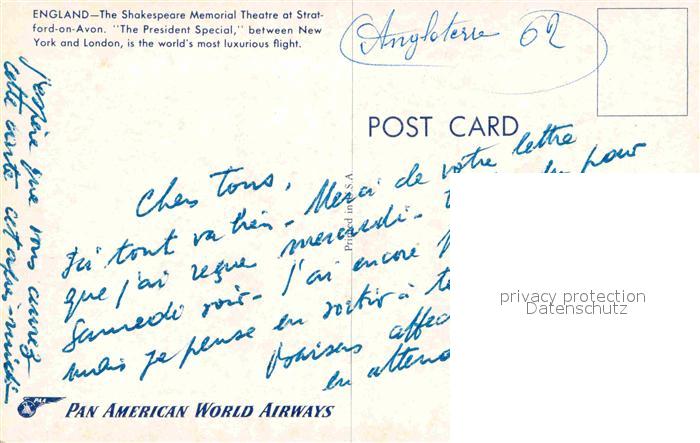 ENGLAND—The Shakespeare Memorial Theatre at Strat-
ford-on-Avon. "The President Special," between New
York and London, is the world's most luxurious flight.
Angleterre 62
POST CARD
Printed in U.S.A
Chers Tous,
Ici tout va bien - Merci de votre lettre
que j'ai reçue mercredi - pour
Samedi soir - J'ai encore
mais je pense en sortir à
Baisers
en
j'espère que vous aurez
cette carte cet après-midi
privacy protection
Datenschutz
PAA
PAN AMERICAN WORLD AIRWAYS